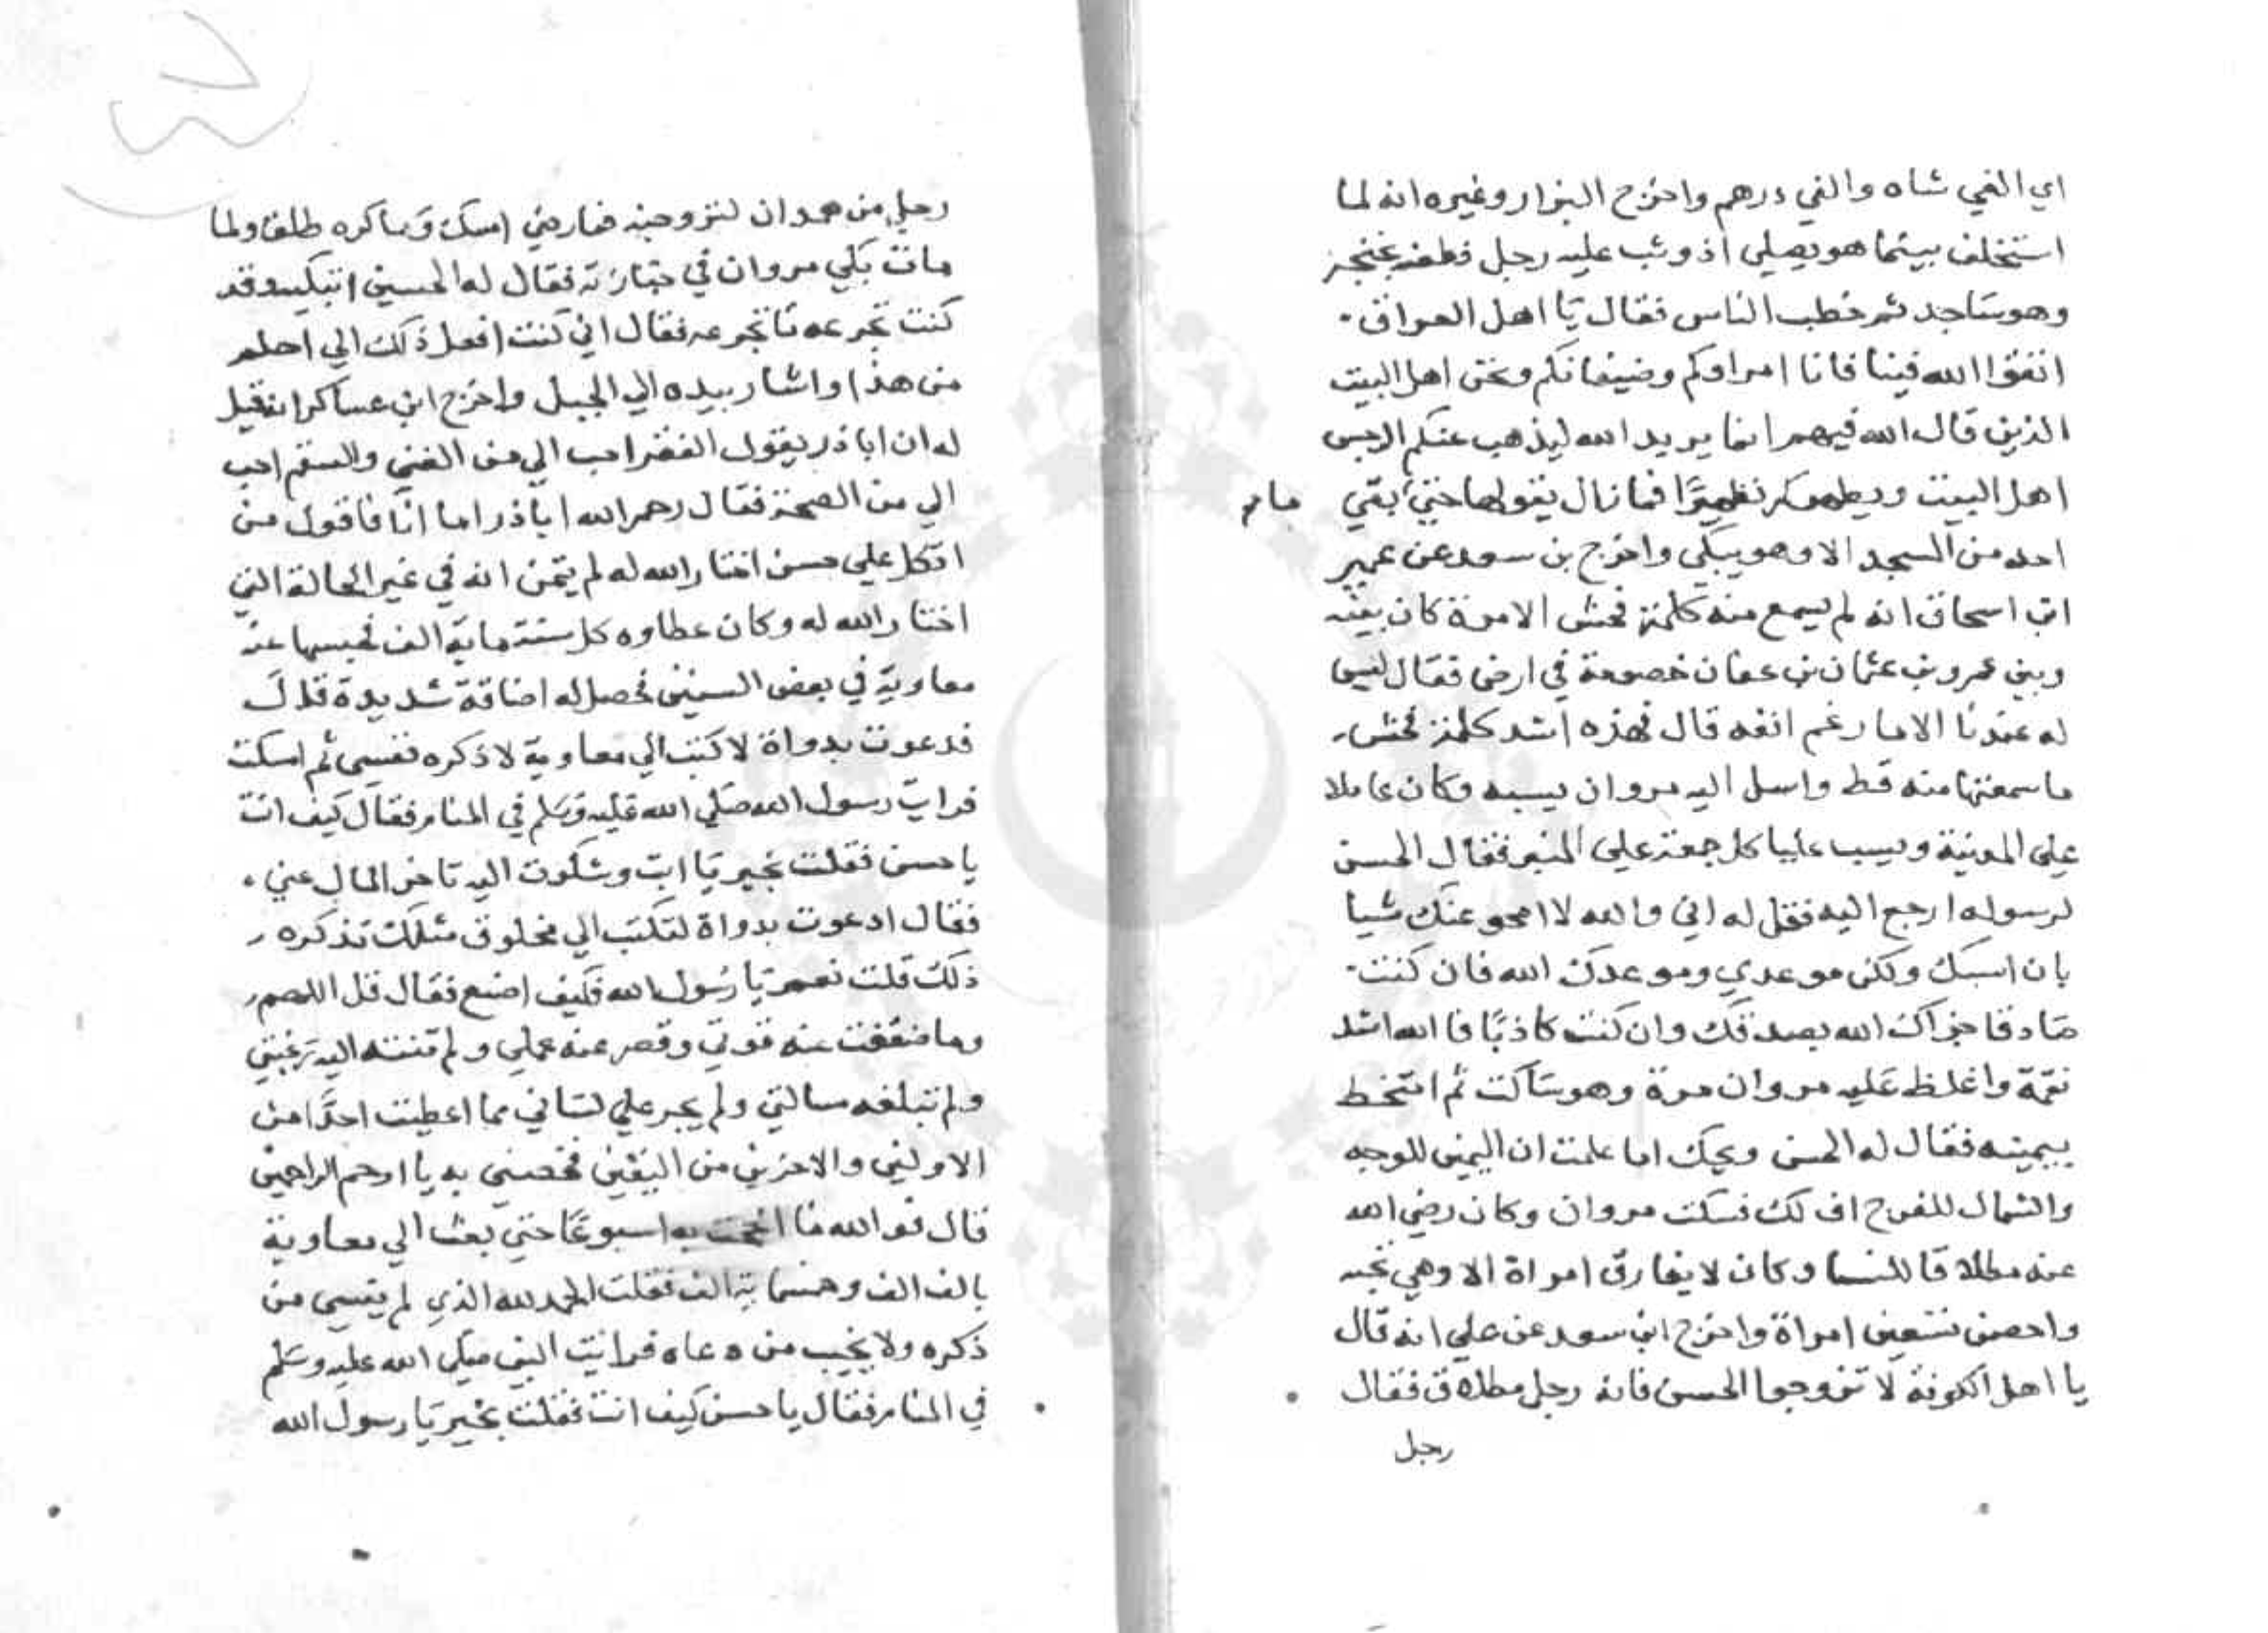 اي الفي شاه والفي درهم واخرج البزار وغيره انه لما
استخلف بينما هو يصلي اذ وثب عليه رجل فطعنه بخنجر
وهو ساجد ثم خطب الناس فقال يا اهل العراق
اتقوا الله فينا فانا امراوكم وضيفانكم ونحن اهل البيت
الذين قال الله فيهم انما يريد الله ليذهب عنكم الرجس
اهل البيت ويطهركم تطهيرا فما زال يقولها حتي بقي
احد من المسجد الا وهو يبكي واخرج بن سعد عن عمير
ابن اسحاق انه لم يسمع منه كلمة فحش الا مرة كان بينه
وبين عمرو بن عثمان بن عفان خصومة في ارض فقال ليس
له عندنا الا ما رغم انفه قال فهذه اشد كلمة فحش
ما سمعتها منه قط واسل اليه مروان يسبه وكان عاملا
علي المدينة ويسب عليا كل جمعة علي المنبر فقال الحسن
لرسوله ارجع اليه فقل له اني والله لا امحو عنك شيا
بان اسبك ولكن موعدي وموعدك الله فان كنت
صادقا جزاك الله بصدقك وان كنت كاذبا فالله اشد
نقمة واغلظ عليه مروان مرة وهو ساكت ثم امتخط
بيمينه فقال له الحسن ويحك اما علمت ان اليمين للوجه
والشمال للفرج اف لك فسكت مروان وكان رضي الله
عنه مطلاقا للنسا وكان لا يفارق امراة الا وهي تحبه
واحصن تسعين امراة واخرج ابن سعد عن علي انه قال
يا اهل الكوفة لا تزوجوا الحسن فانه رجل مطلاق فقال
رجل
رجل من همدان لنزوجنه فما رضي امسك وما كره طلق ولما
مات بكي مروان في جنازته فقال له الحسين اتبكيه وقد
كنت تجرعه ما تجرعه فقال اني كنت افعل ذلك الي احلم
من هذا واشار بيده الي الجبل واخرج ابن عساكر انه قيل
له ان ابا ذر يقول الفقر احب الي من الغني والسقم احب
الي من الصحة فقال رحم الله ابا ذر اما انا فاقول من
اتكل علي حسن اختار الله له لم يتمن انه في غير الحالة التي
اختار الله له وكان عطاوه كل سنة ماية الف فحبسها عنه
معاوية في بعض السنين فحصل له اضاقة شديدة قال
فدعوت بدواة لاكتب الي معاوية لاذكره نفسي ثم امسكت
فرايت رسول الله صلي الله عليه وسلم في المنام فقال كيف انت
يا حسن فقلت بخير يا ابت وشكوت اليه تاخر المال عني
فقال ادعوت بدواة لتكتب الي مخلوق مثلك تذكره
ذلك قلت نعم يا رسول الله فكيف اصنع فقال قل اللهم
وما ضعفت عنه قوتي وقصر عنه عملي ولم تنته اليه رغبتي
ولم تبلغه مسالتي ولم يجر علي لساني مما اعطيت احدا من
الاولين والاخرين من اليقين فخصني به يا ارحم الراحمين
قال فوالله ما الححت به اسبوعا حتي بعث الي معاوية
بالف الف وخمسماية الف فقلت الحمد لله الذي لم ينسي من
ذكره ولا يخيب من دعاه فرايت النبي صلي الله عليه وسلم
في المنام فقال يا حسن كيف انت فقلت بخير يا رسول الله